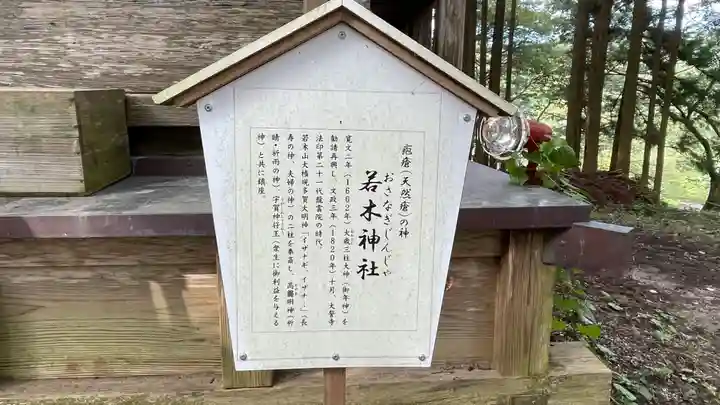 疱瘡(天然痘)の神
おさなぎじんじゃ
若木神社
寛文二年(1662年)大歳三社大神(御年神)を
勧請再興し、文政三年(1820年)十月 大誓寺
法印第二十一代 院の時代、
若木山大権現多賀大明神「イザナギ、イザナミ」(長
寿の神、夫婦の神)の二社を奉斎し、高龗明神(祈
晴・祈雨の神)、宇賀神将王(衆生に御利益を与える
神)と共に鎮座